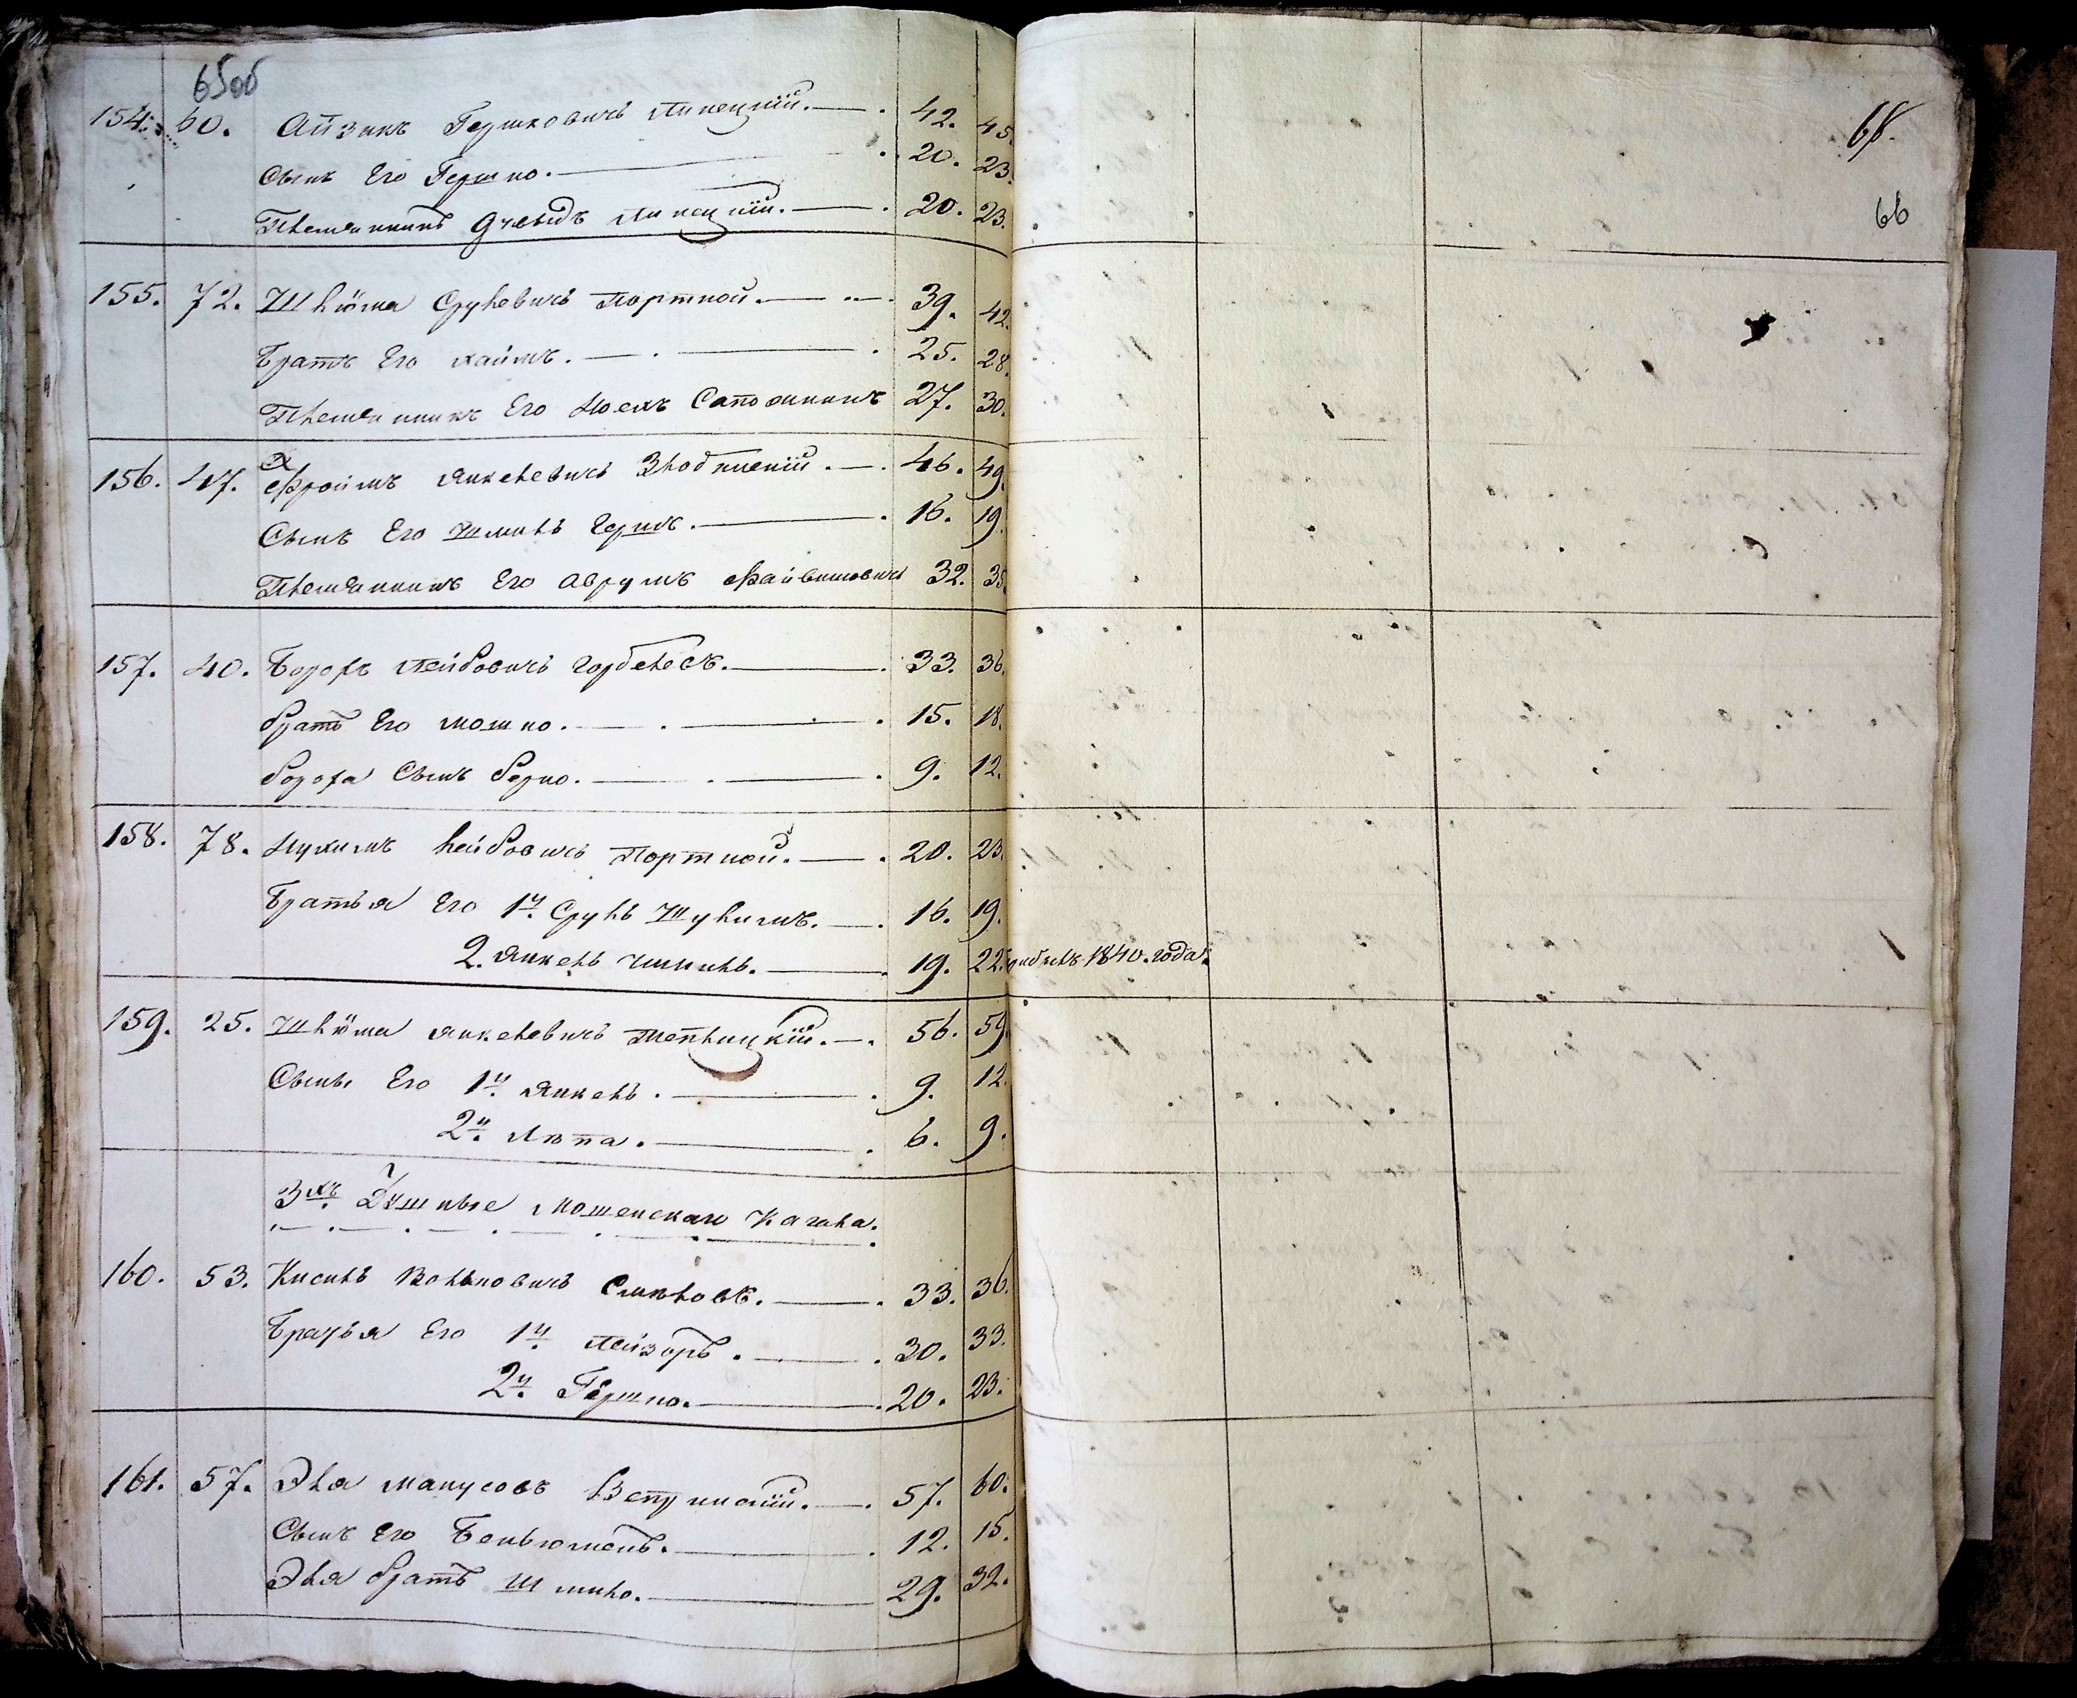 65об
154. 60. Айзикъ Гершковичъ Липецкій. 42. 45.
Сынъ Его Гершко. 20. 23.
Племянникъ Дувидъ Липецкій. 20. 23.
155. 72. Шлёма Срулевичъ Портной. 39. 42.
Братъ Его Хаимъ. 25. 28.
Племянникъ Его Іоель Сапожникъ 27. 30.
156. 47. Фроимъ Янкелевичъ Злобинскій. 46. 49.
Сынъ Его Шмиль Гершъ. 16. 19.
Племянникъ Его Аврумъ Файвишовичъ 32. 35.
157. 40. Борохъ Лейбовичъ Горбеловъ. 33. 36.
братъ Его Мошко. 15. 18.
Бороха Сынъ Берко. 9. 12.
158. 78. Нухимъ Лейбовичъ Портной. 20. 23.
Братья Его 1й Сруль Шулимъ. 16. 19.
2. Янкель 19. 22. 1840. года.
159. 25. Шлёма Янкелевичъ Теплицкій. 56. 59.
Сыны Его 1й Янкель. 9. 12.
2й Липа. 6. 9.
3хъ Душные Мошенскаго Кагала.
160. 53. Кисиль Вольковичъ 33. 36.
Братья Его 1й Лейзоръ. 30. 33.
2й Гершко. 20. 23.
161. 57. Эля Манусовъ 57. 60.
Сынъ Его Беньюменъ. 12. 15.
Эля братъ Шмилю. 29. 32.
68.
66